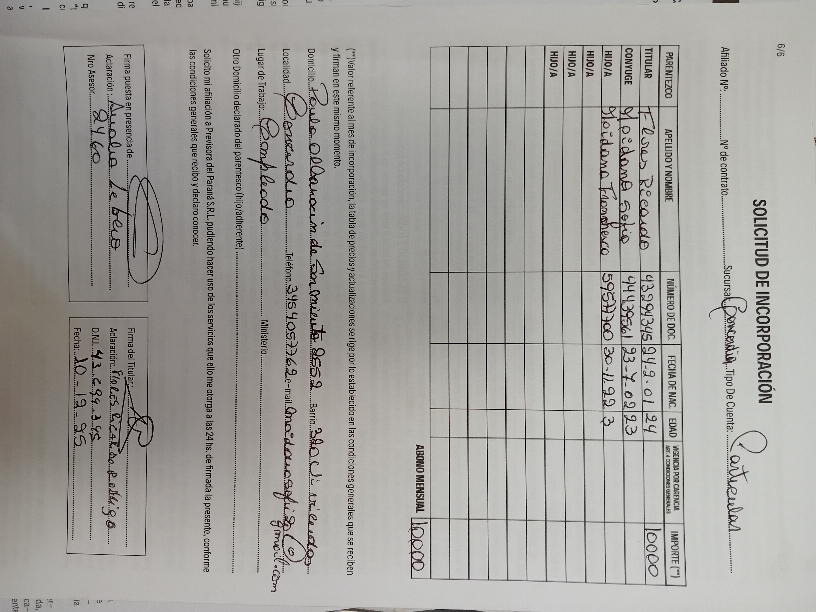 6/6
SOLICITUD DE INCORPORACIÓN
Afiliado Nº: Nº de contrato Sucursal: Concordia Tipo De Cuenta: Particular
PARENTEZCO APELLIDO Y NOMBRE NÚMERO DE DOC. FECHA DE NAC. EDAD VIGENCIA POR CARENCIA IMPORTE (**)
TITULAR Flores Ricardo 43294345 24-2-01 24 10000
CONYUGE Maidana Sofia 44439561 23-7-02 23
HIJO/A Maidana Francesco 59577700 30-11-22 3
HIJO/A
HIJO/A
HIJO/A
ABONO MENSUAL 10000
(**) Valor referente al mes de incorporación, la tabla de precios y actualizaciones se rige por lo establecido en las condiciones generales que se reciben
y firman en este mismo momento.
Domicilio: Paula Albarracin de Sarmiento 2552 Barrio: 320 Viviendas
Localidad: Concordia Teléfono: 3454057762 e-mail: maidanasofia@gmail.com
Lugar de Trabajo: Empleado Ministerio
Otro Domicilio declarado del parentesco (hijo/adherente)
Solicito mi afiliación a Previsora del Paraná S.R.L. pudiendo hacer uso de los servicios que ello me otorga a las 24 hs. de firmada la presente, conforme
las condiciones generales que recibo y declaro conocer.
Firma puesta en presencia de
Aclaración: Analia
Nro Asesor: 2460
Firma del Titular
Aclaración: Flores Ricardo Rodrigo
D.N.I.: 43.294.345
Fecha: 10-12-25